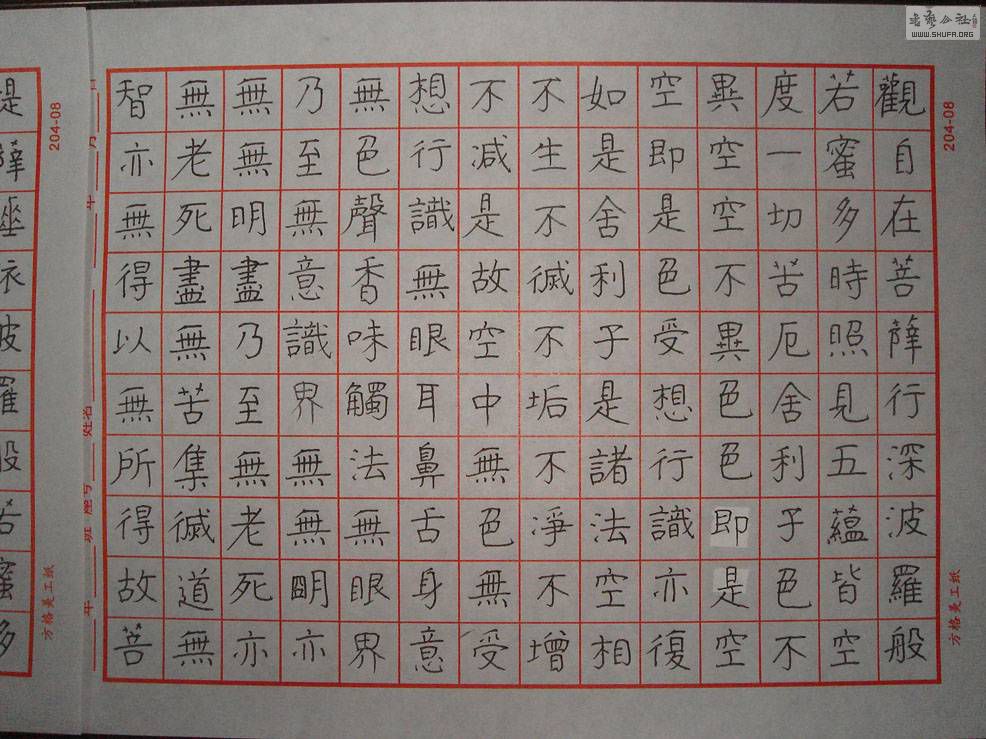 觀自在菩薩行深波羅般
若蜜多時照見五蘊皆空
度一切苦厄舍利子色不
異空空不異色色即是空
空即是色受想行識亦復
如是舍利子是諸法空相
不生不滅不垢不淨不增
不減是故空中無色無受
想行識無眼耳鼻舌身意
無色聲香味觸法無眼界
乃至無意識界無無明亦
無無明盡乃至無老死亦
無老死盡無苦集滅道無
智亦無得以無所得故菩
提薩埵依波羅般若蜜多
204-08
方格美工纸
204-08
方格美工纸
姓名
班
書藝公社
WWW.SHUFA.ORG